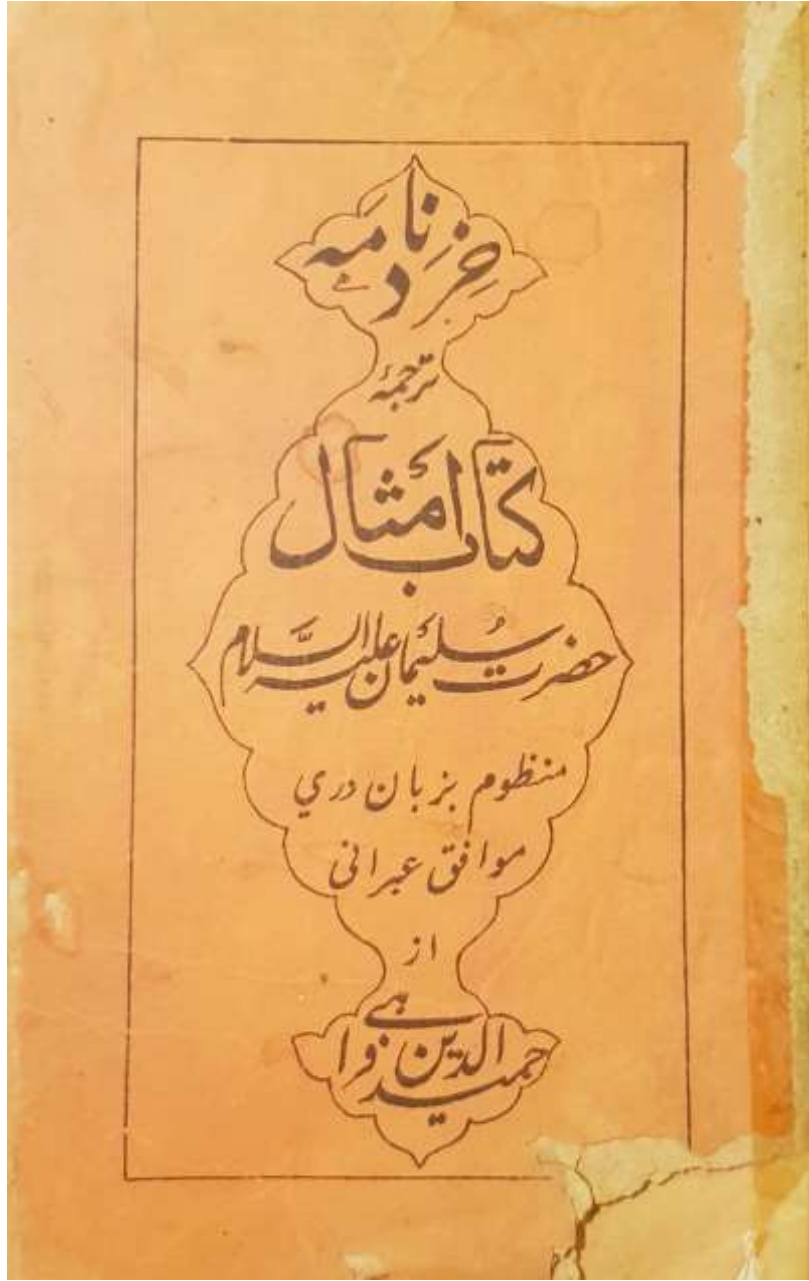 خِرَد نامَہ
ترجمۂ
کتَاب اَمثَال
حضرت سُلیَمان علیہ السَّلام
منظوم بزبان دري
موافق عبرانی
از
حمید الدین فراہے